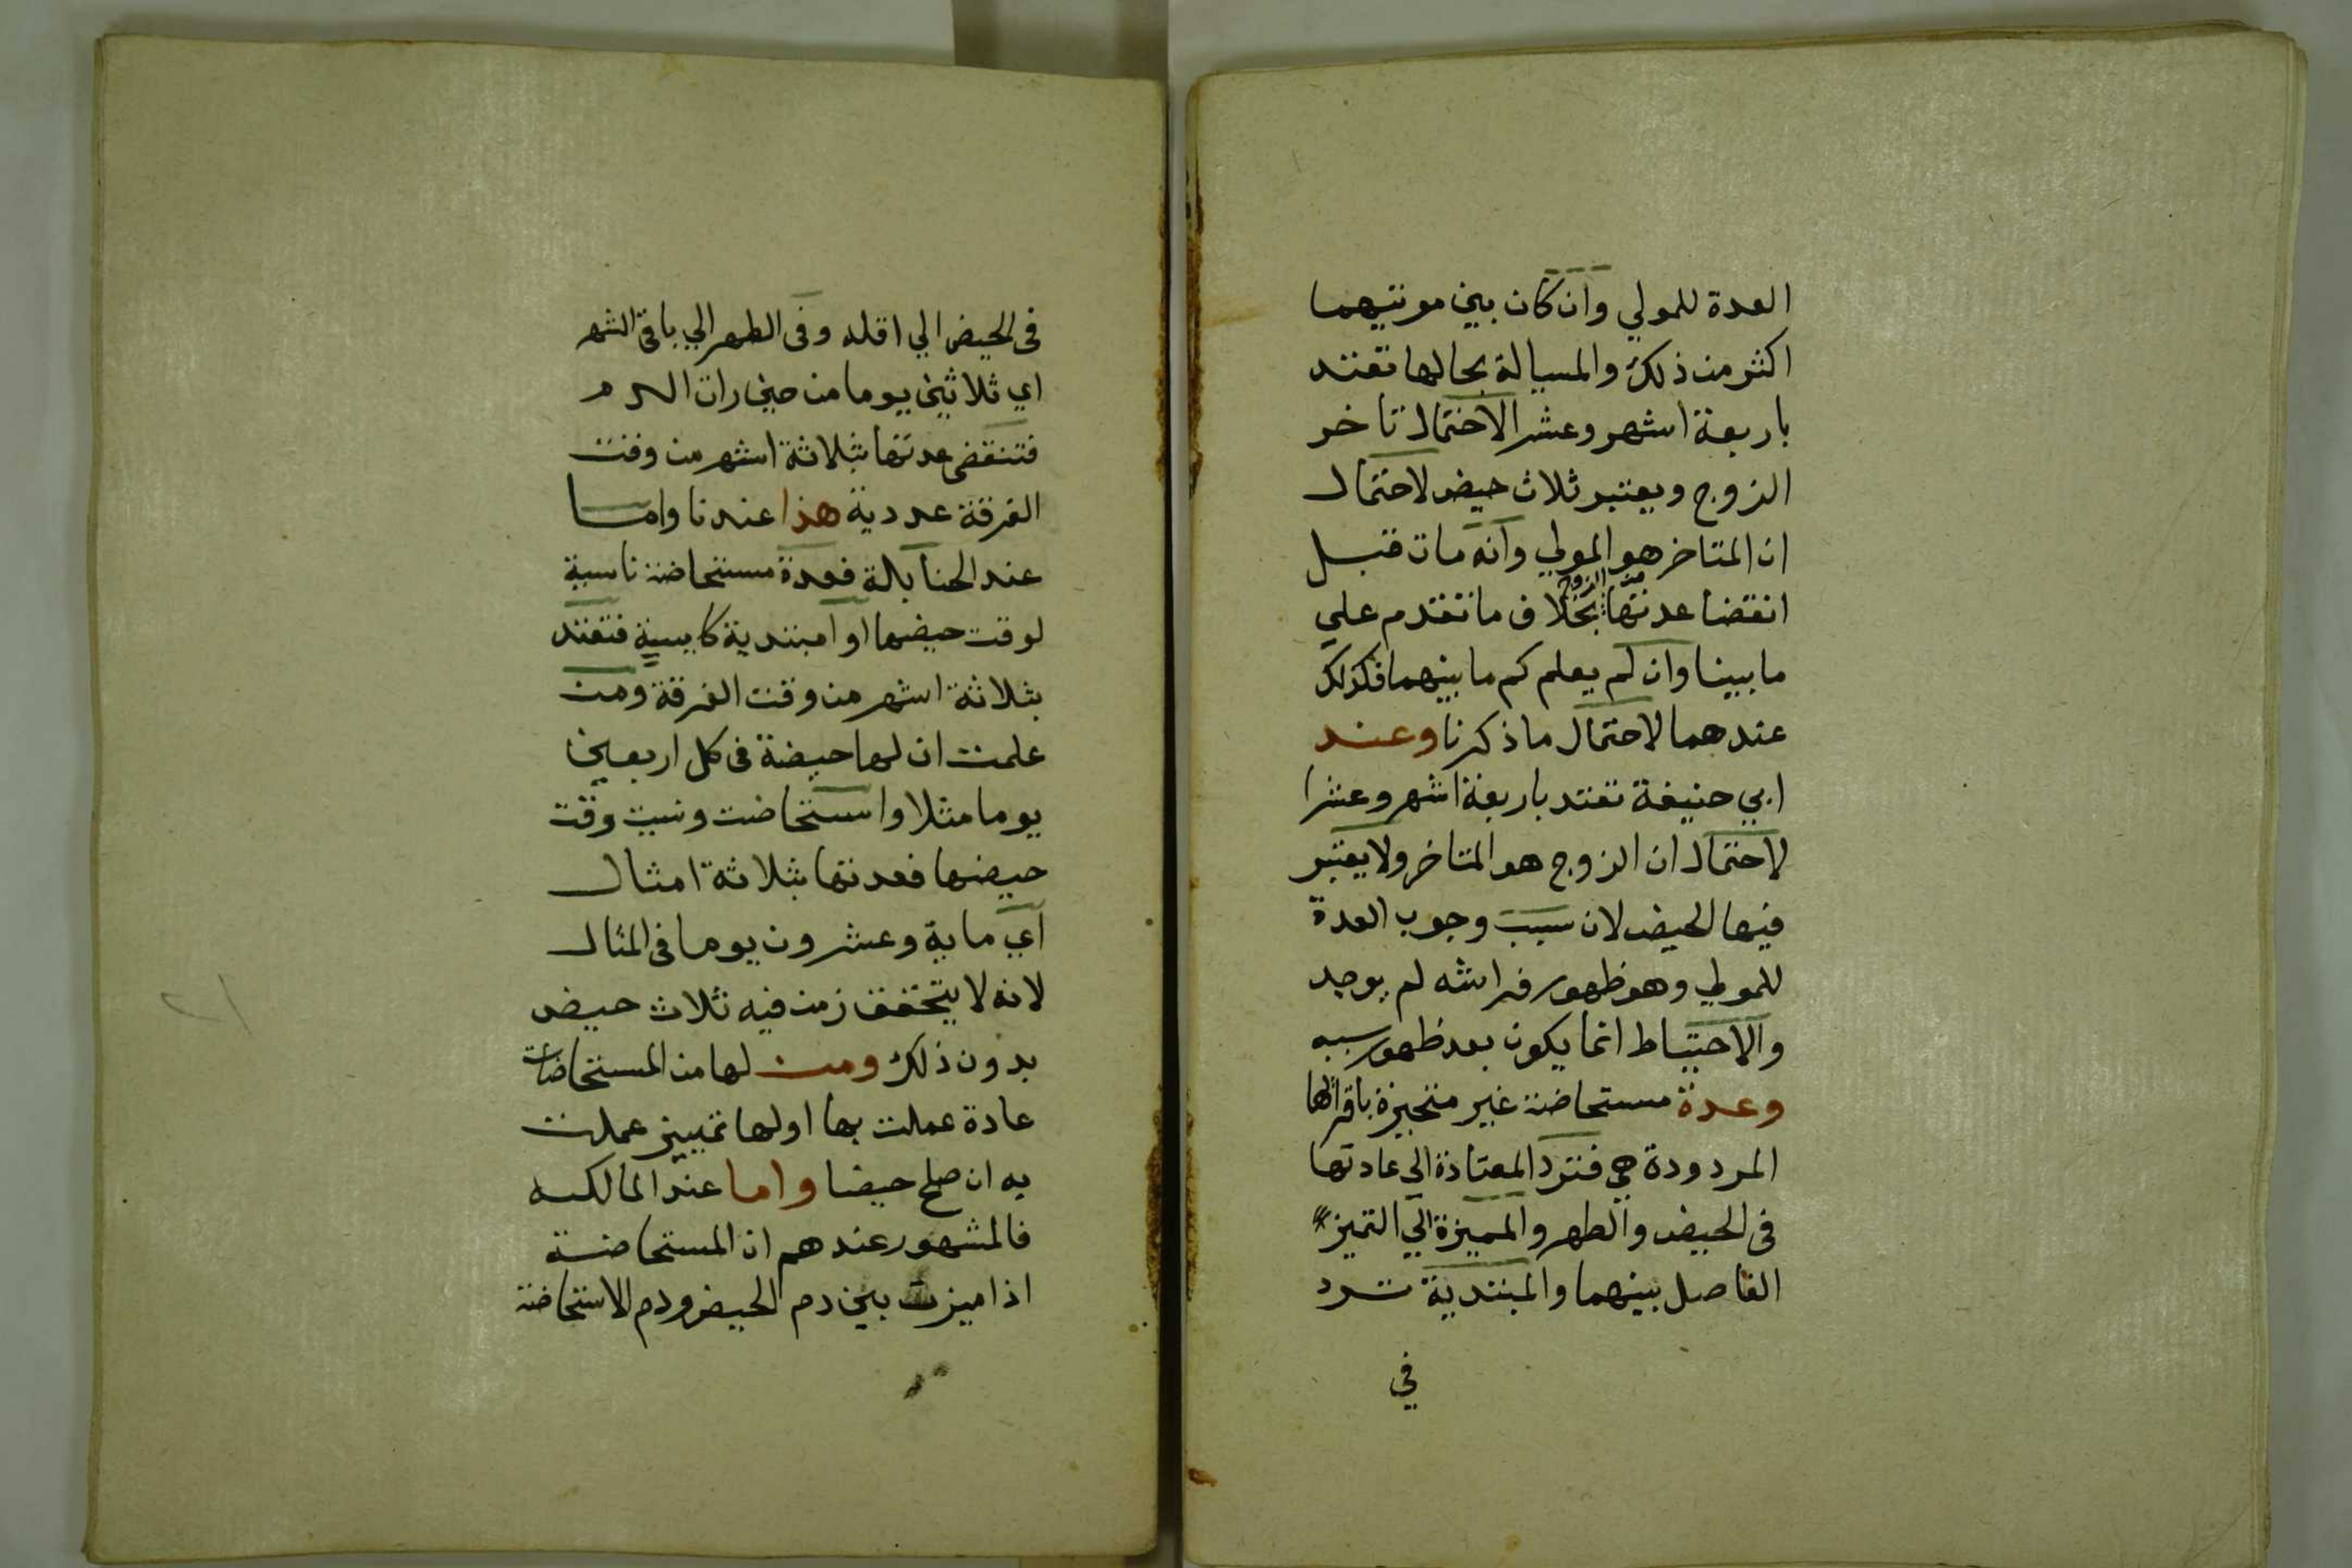 العدة للمولي وان كان بين موتيهما
اكثر من ذلك والمسيالة بحالها تعتد
باربعة اشهر وعشر الاحتمال تاخر
الزوج ويعتبر ثلاث حيض لاحتمال
ان المتاخر هو المولي وانه مات قبل
من الزوج
انقضا عدتها بخلاف ما تقدم علي
ما بينا وان لم يعلم كم ما بينهما فكذلك
عندهما لاحتمال ما ذكرنا وعند
ابي حنيفة تعتد باربعة اشهر وعشرا
لاحتمال ان الزوج هو المتاخر ولا يعتبر
فيها الحيض لان سبب وجوب العدة
للمولي وهو ظهور فراشه لم يوجد
والاحتياط انما يكون بعد ظهور سببه
وعدة مستحاضة غير متحيزة باقرائها
المردودة هي فترد المعتادة الي عادتها
في الحيض والطهر والمميزة الي التميز
الفاصل بينهما والمبتدية ترد
في
في الحيض الي اقله وفي الطهر الي باقي الشهر
اي ثلاثين يوما من حين رات الدم
فتنقضي عدتها بثلاثة اشهر من وقت
الفرقة عددية هذا عندنا واما
عند الحنابلة فعدة مستحاضة ناسية
لوقت حيضها او مبتدية كايسية فتعتد
بثلاثة اشهر من وقت الفرقة ومن
علمت ان لها حيضة في كل اربعين
يوما مثلا واستحاضت ونسيت وقت
حيضها فعدتها بثلاثة امثال
اي ماية وعشرون يوما في المثال
لانه لا يتحقق زمن فيه ثلاث حيض
بدون ذلك ومن لها من المستحاضات
عادة عملت بها او لها تمييز عملت
به ان صلح حيضا واما عند المالكيه
فالمشهور عندهم ان المستحاضة
اذا ميزت بين دم الحيض ودم الاستحاضة